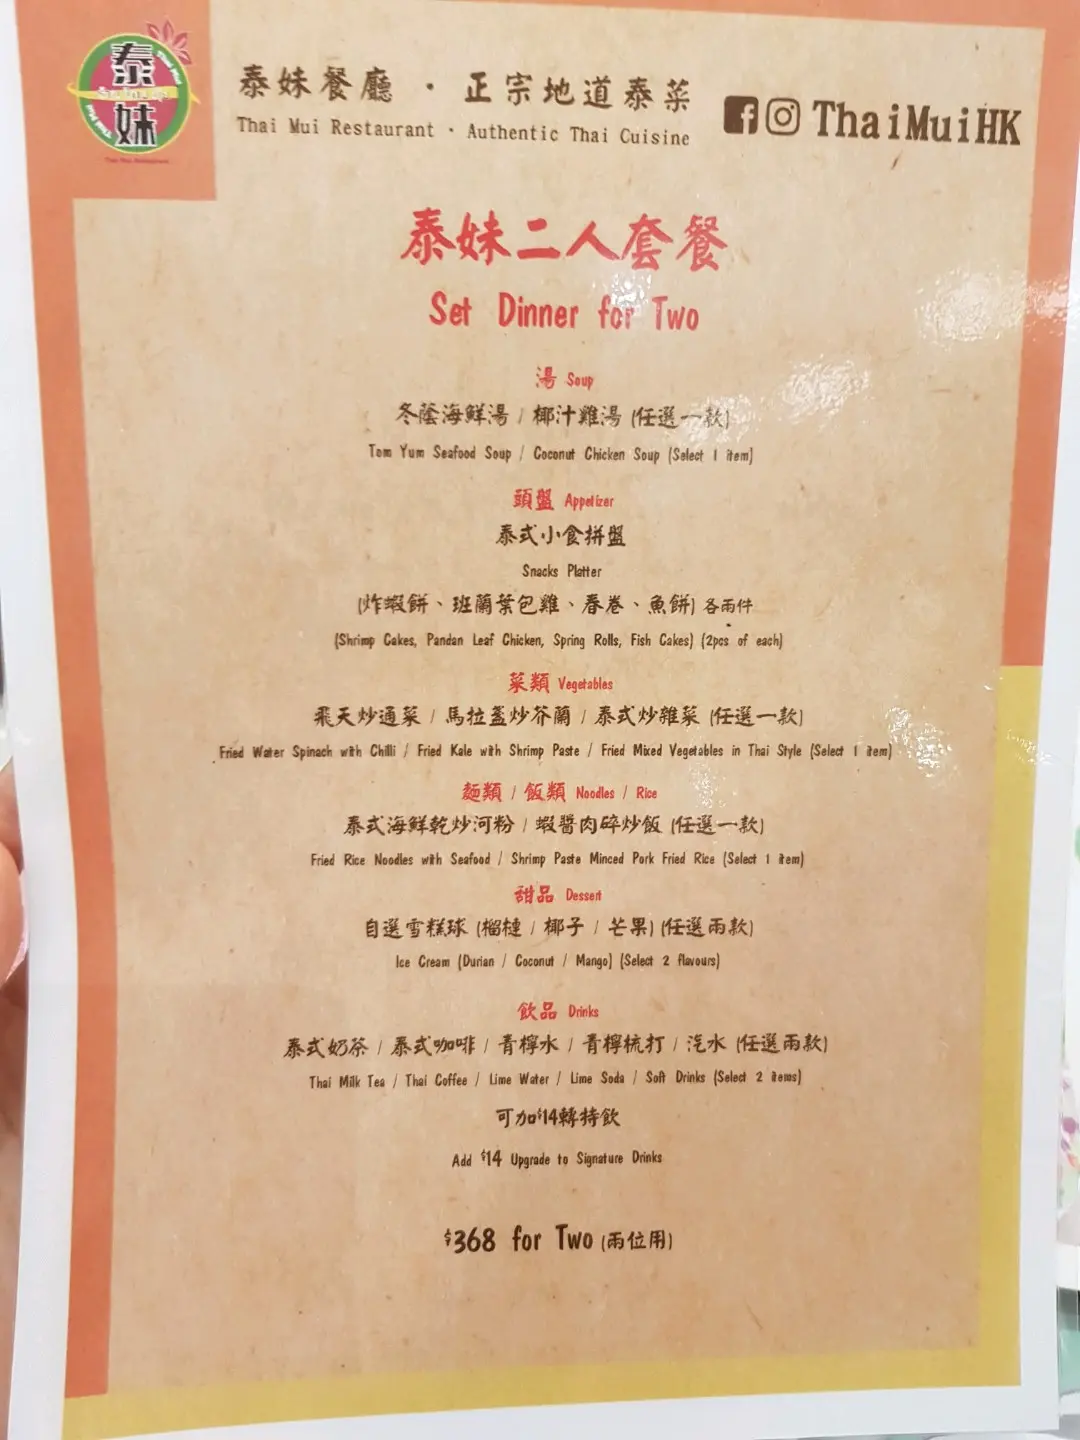 泰妹
泰妹餐廳 · 正宗地道泰菜
Thai Mui Restaurant · Authentic Thai Cuisine
ThaiMuiHK
泰妹二人套餐
Set Dinner for Two
湯 Soup
冬蔭海鮮湯 / 椰汁雞湯 (任選一款)
Tom Yum Seafood Soup / Coconut Chicken Soup (Select 1 item)
頭盤 Appetizer
泰式小食拼盤
Snacks Platter
(炸蝦餅、班蘭葉包雞、春卷、魚餅) 各兩件
(Shrimp Cakes, Pandan Leaf Chicken, Spring Rolls, Fish Cakes) (2pcs of each)
菜類 Vegetables
飛天炒通菜 / 馬拉盞炒芥蘭 / 泰式炒雜菜 (任選一款)
Fried Water Spinach with Chilli / Fried Kale with Shrimp Paste / Fried Mixed Vegetables in Thai Style (Select 1 item)
麵類 / 飯類 Noodles / Rice
泰式海鮮乾炒河粉 / 蝦醬肉碎炒飯 (任選一款)
Fried Rice Noodles with Seafood / Shrimp Paste Minced Pork Fried Rice (Select 1 item)
甜品 Dessert
自選雪糕球 (榴槤 / 椰子 / 芒果) (任選兩款)
Ice Cream (Durian / Coconut / Mango) (Select 2 flavours)
飲品 Drinks
泰式奶茶 / 泰式咖啡 / 青檸水 / 青檸梳打 / 汽水 (任選兩款)
Thai Milk Tea / Thai Coffee / Lime Water / Lime Soda / Soft Drinks (Select 2 items)
可加$14轉特飲
Add $14 Upgrade to Signature Drinks
$368 for Two (兩位用)